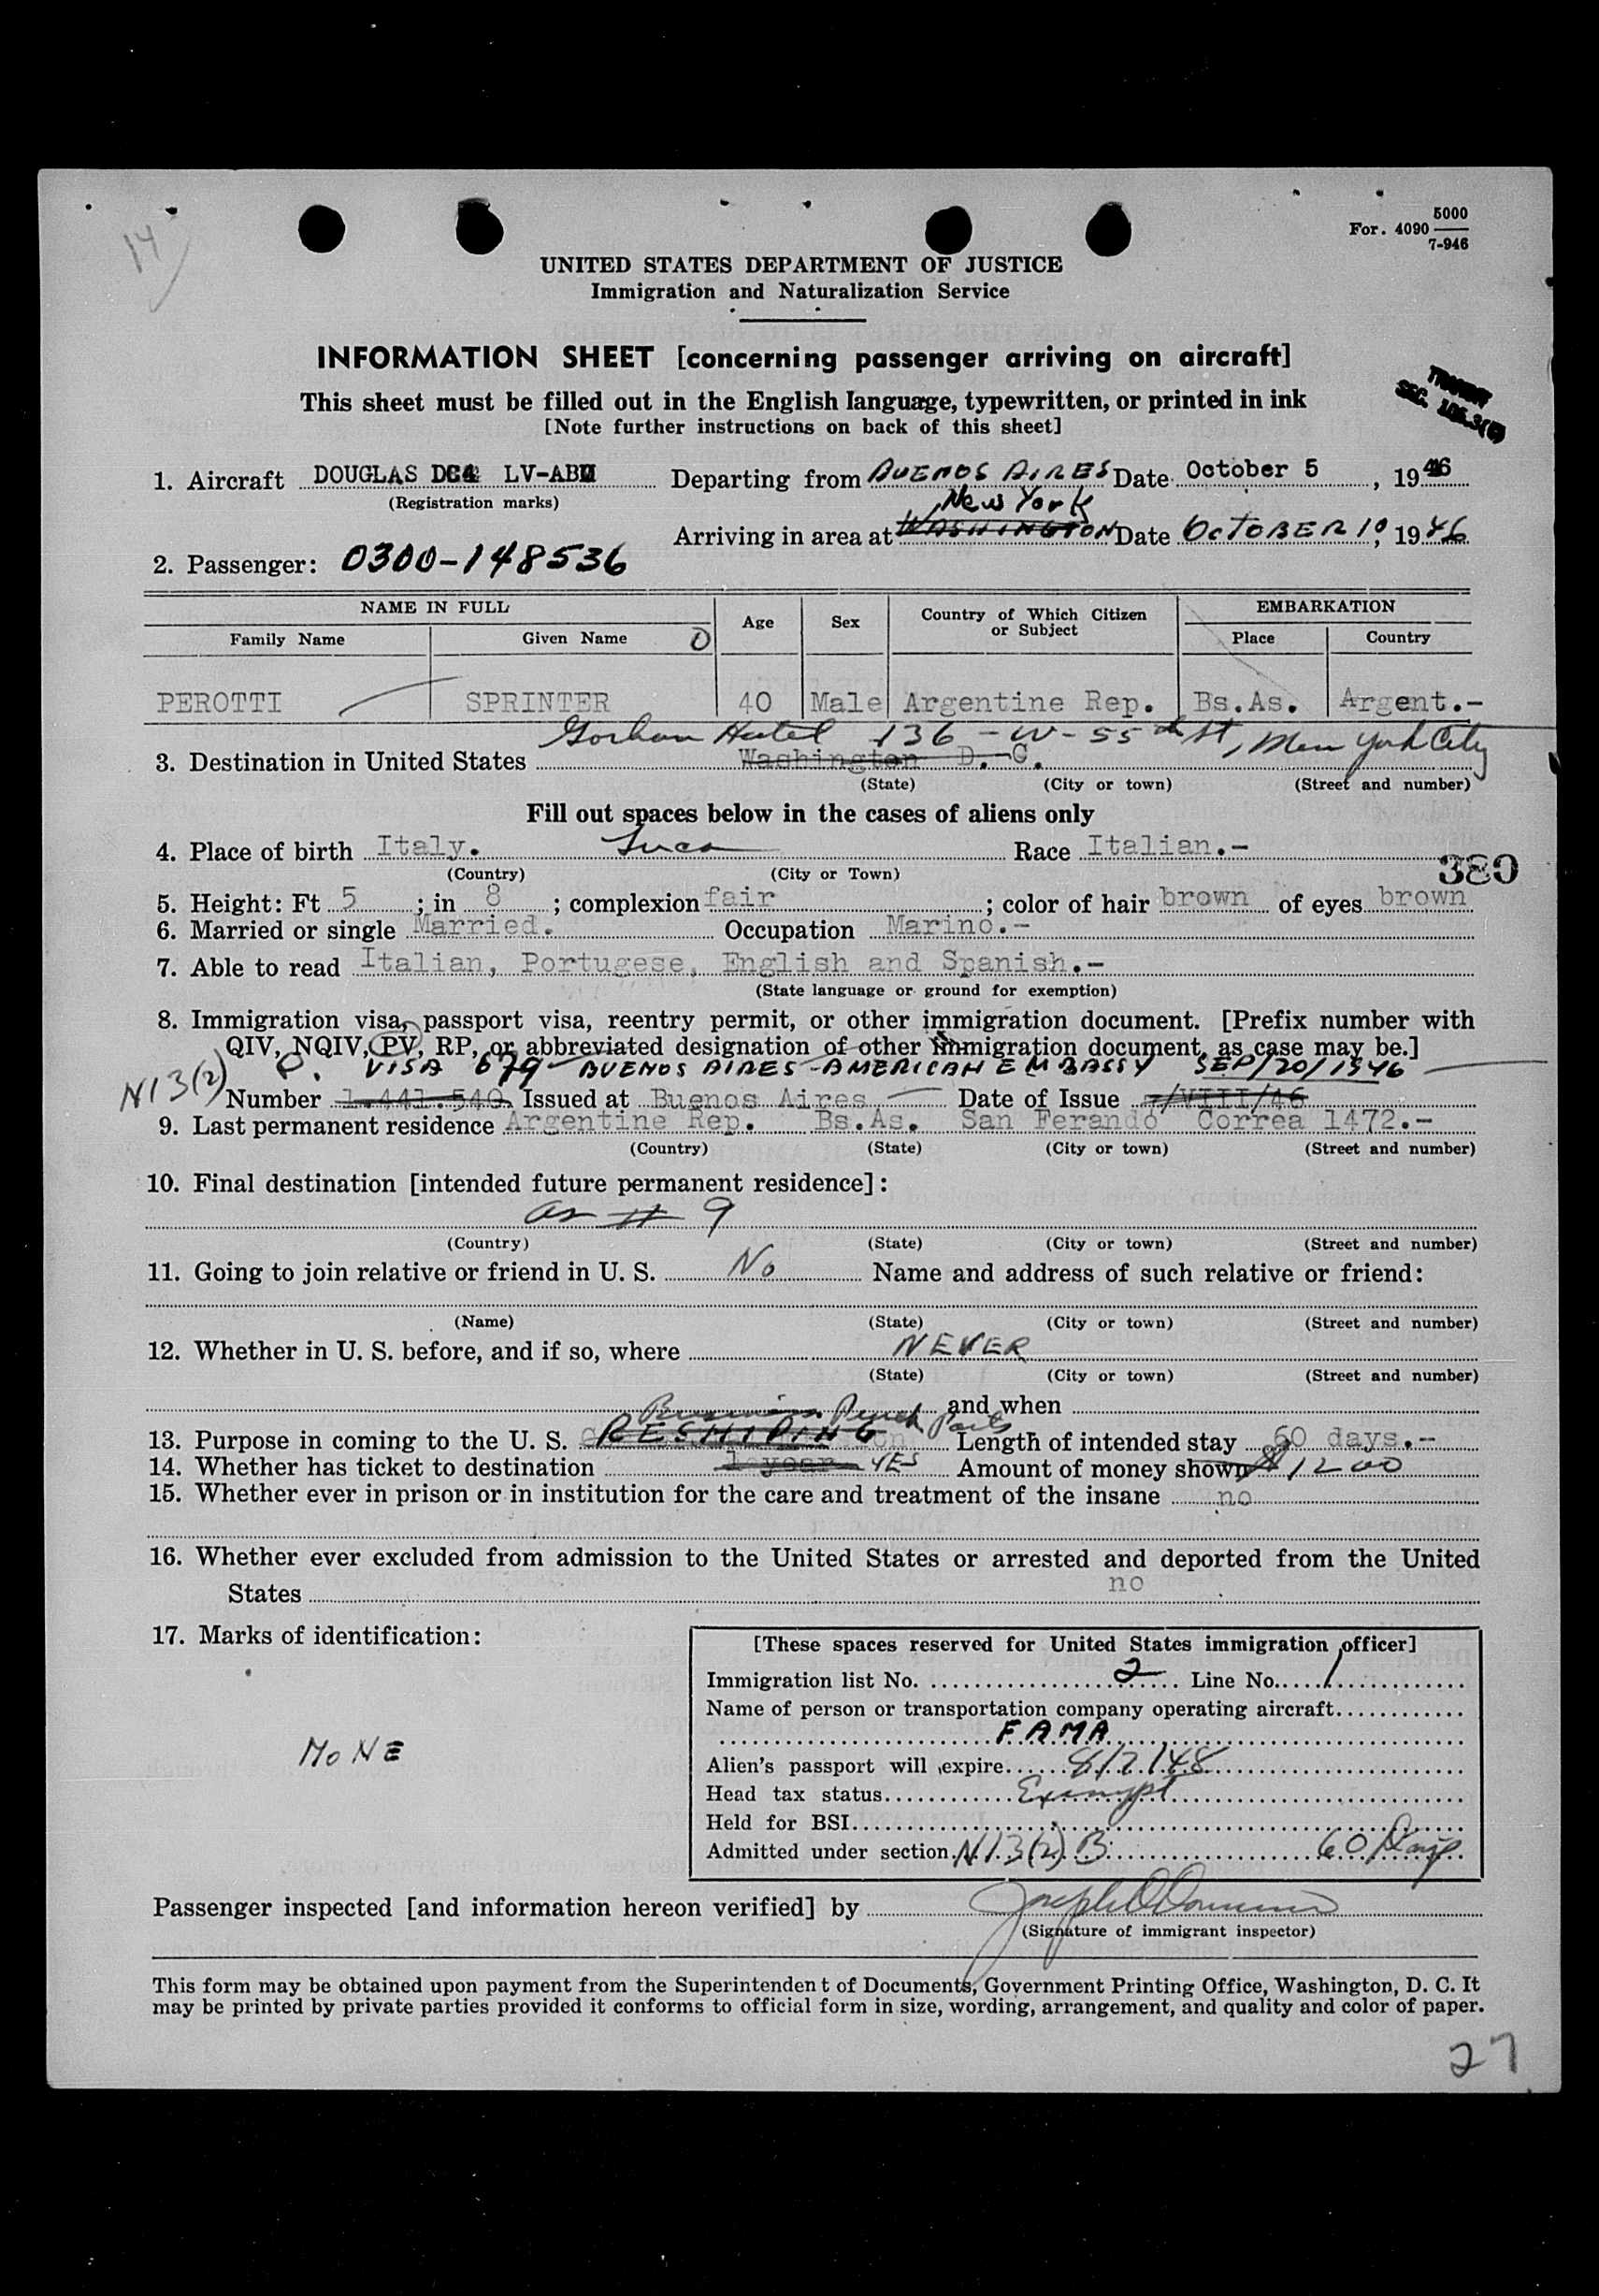 14
5000
For. 4090
7-946
UNITED STATES DEPARTMENT OF JUSTICE
Immigration and Naturalization Service
INFORMATION SHEET [concerning passenger arriving on aircraft]
This sheet must be filled out in the English language, typewritten, or printed in ink
[Note further instructions on back of this sheet]
SEC.
1. Aircraft DOUGLAS DC4 LV-ABM Departing from BUENOS AIRES Date October 5, 1946
(Registration marks)
New York
Arriving in area at WASHINGTON Date OCTOBER 10, 1946
2. Passenger: 0300-148536
NAME IN FULL Age Sex Country of Which Citizen or Subject EMBARKATION
Family Name Given Name Place Country
PEROTTI SPRINTER 40 Male Argentine Rep. Bs.As. Argent.-
Hotel 136-W-55th St, New York City
3. Destination in United States Washington D.-C.
(State) (City or town) (Street and number)
Fill out spaces below in the cases of aliens only
4. Place of birth Italy. Luca Race Italian.-
(Country) (City or Town)
380
5. Height: Ft 5; in 8; complexion fair; color of hair brown of eyes brown
6. Married or single Married. Occupation Marino.-
7. Able to read Italian, Portugese, English and Spanish.-
(State language or ground for exemption)
8. Immigration visa, passport visa, reentry permit, or other immigration document. [Prefix number with
QIV, NQIV, PV, RP, or abbreviated designation of other immigration document, as case may be.]
N13(2) P. VISA 679 - BUENOS AIRES - AMERICAN EMBASSY SEP/20/1946
Number 1.441.540. Issued at Buenos Aires Date of Issue /VIII/46
9. Last permanent residence Argentine Rep. Bs.As. San Ferando Correa 1472.-
(Country) (State) (City or town) (Street and number)
10. Final destination [intended future permanent residece]:
as # 9
(Country) (State) (City or town) (Street and number)
11. Going to join relative or friend in U. S. No Name and address of such relative or friend:
(Name) (State) (City or town) (Street and number)
12. Whether in U. S. before, and if so, where NEVER
(State) (City or town) (Street and number)
and when
Business
13. Purpose in coming to the U. S. RESHIPING Length of intended stay 60 days.-
14. Whether has ticket to destination 1 year YES Amount of money shown $1200
15. Whether ever in prison or in institution for the care and treatment of the insane no
16. Whether ever excluded from admission to the United States or arrested and deported from the United
States no
17. Marks of identification:
NONE
[These spaces reserved for United States immigration officer]
Immigration list No. 2 Line No. 1
Name of person or transportation company operating aircraft
FAMA
Alien's passport will expire 8/7/48
Head tax status Exempt
Held for BSI
Admitted under section N13(2) B 60 Days
Passenger inspected [and information hereon verified] by
(Signature of immigrant inspector)
This form may be obtained upon payment from the Superintendent of Documents, Government Printing Office, Washington, D. C. It
may be printed by private parties provided it conforms to official form in size, wording, arrangement, and quality and color of paper.
27